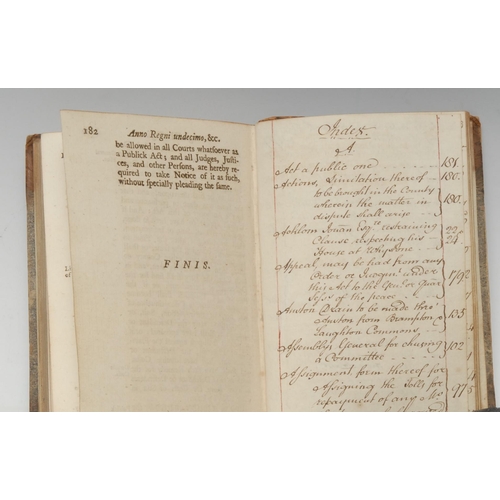 182
Anno Regni undecimo, &c.
be allowed in all Courts whatsoever as
a Publick Act; and all Judges, Justi-
ces, and other Persons, are hereby re-
quired to take Notice of it as such,
without specially pleading the same.
FINIS.
Index.
A
Act a public one 181
Actions, Limitation thereof 180
to be brought in the County
wherein the matter in 180
dispute shall arise
Achlom Esqr. restraining 22
Clause respecting his 24
House at
Appeal, may be had from any
Order or under 179
this Act to the or Quar
Sess of the peace
Anston Drain to be made thro'
Anston from Brampton & 135
Laughton Commons
Assembly General for chusing 102
a Committee
Assignment form thereof for
Assigning the Tolls for 97
repayment of any